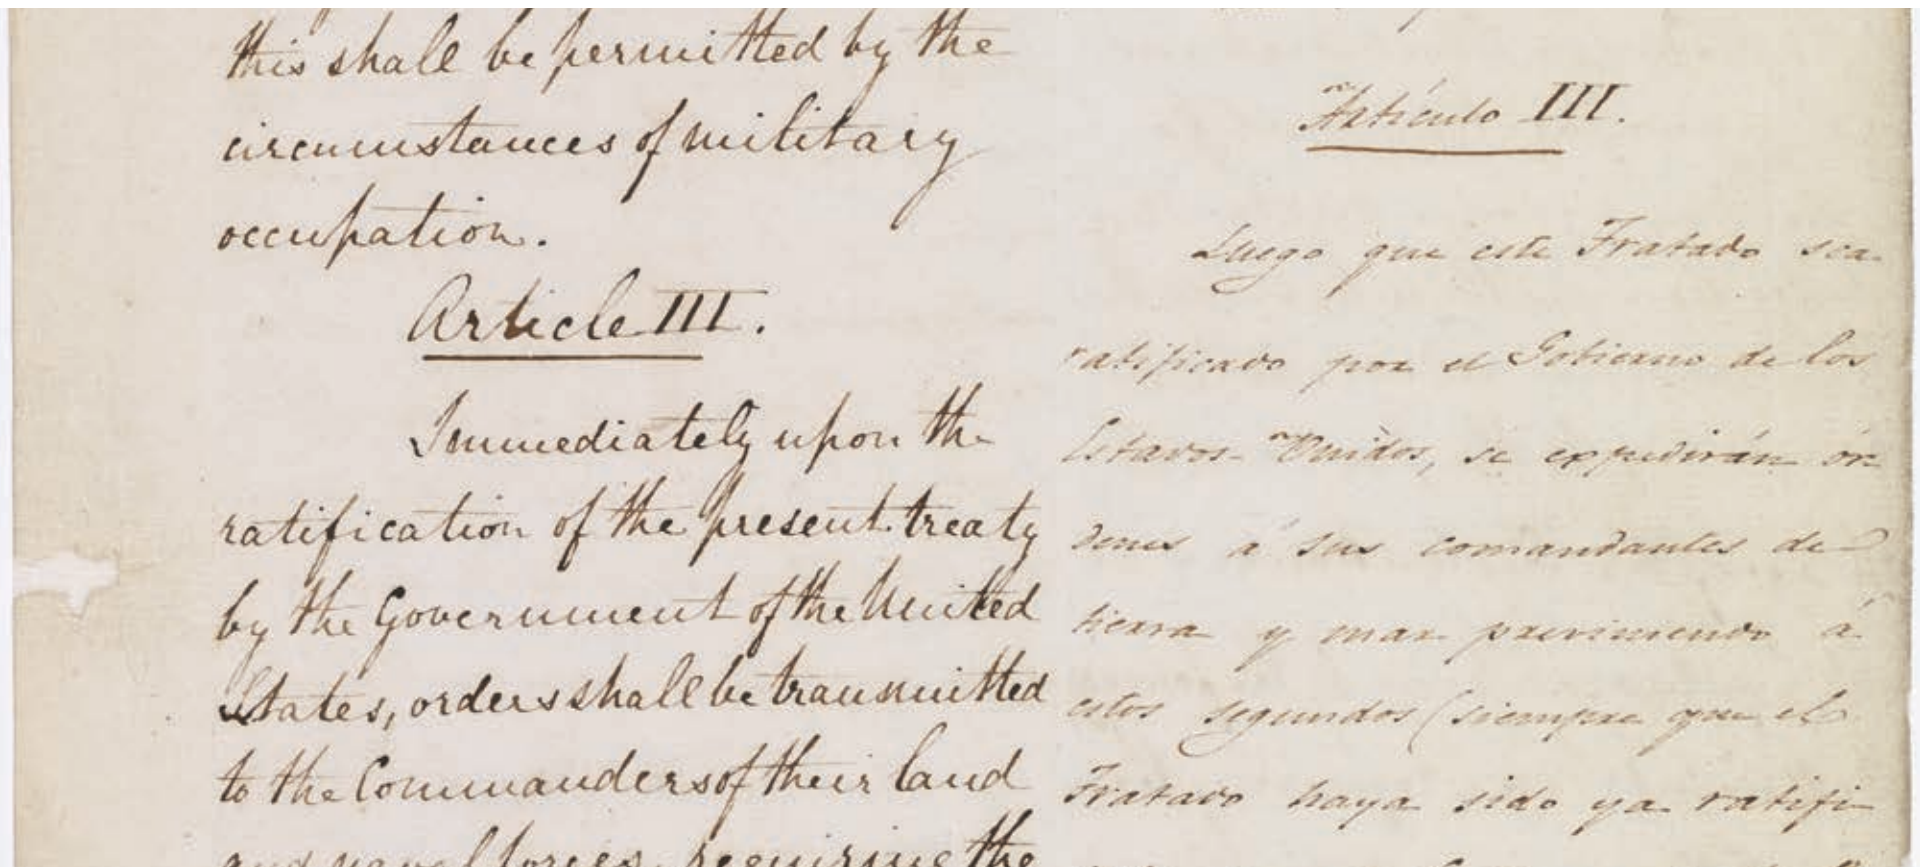 this shall be permitted by the
circumstances of military
occupation.
Article III.
Immediately upon the
ratification of the present treaty
by the Government of the United
States, orders shall be transmitted
to the Commanders of their land
and naval forces, requiring the
Artículo III.
Luego que este Tratado sea
ratificado por el Gobierno de los
Estados-Unidos, se expedirán ór
denes á sus comandantes de
tierra y mar previniendo á
estos segundos (siempre que el
Tratado haya sido ya ratifi